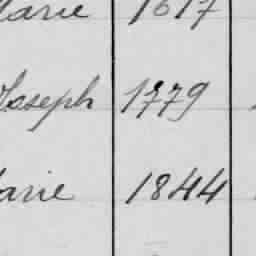 Marie 1817
Joseph 1779
Marie 1844